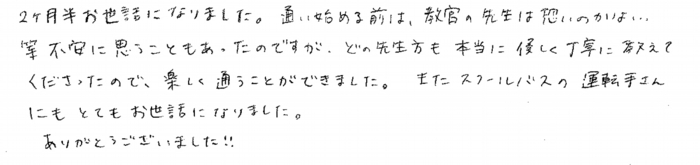 2ヶ月半お世話になりました。通い始める前は、教官の先生は恐いのかな…
等不安に思うこともあったのですが、どの先生方も本当に優しく丁寧に教えて
くださったので、楽しく通うことができました。またスクールバスの運転手さん
にもとてもお世話になりました。
ありがとうございました!!